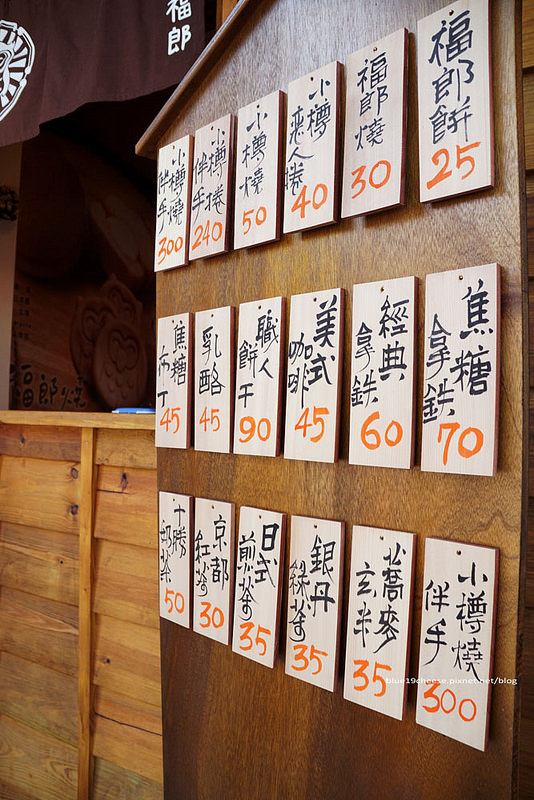 福郎
福郎餅
25
福郎燒
30
小樽
恋人捲
40
小樽燒
50
小樽捲
伴手
240
小樽燒
伴手
300
焦糖
拿鉄
70
經典
拿鉄
60
美式
咖啡
45
職人
餅干
90
乳酪
45
焦糖
布丁
45
小樽燒
伴手
300
蕎麥
玄米
35
銀丹
綠茶
35
日式
煎茶
35
京都
紅茶
30
十勝
奶茶
50
福郎燒
blue19cheese.pixnet.net/blog